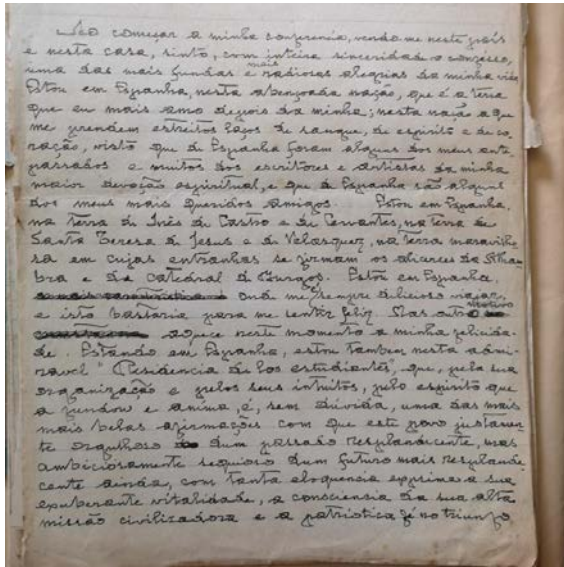 Ao começar a minha conferencia, vendo me neste país
e nesta casa, sinto, com inteira sinceridade o confesso,
uma das mais fundas e mais radiosas alegrias da minha vida.
Estou em Espanha, nesta abençoada nação, que é a terra
que eu mais amo depois da minha; nesta nação a que
me prendem estreitos laços de sangue, de espirito e de co-
ração, visto que de Espanha foram alguns dos meus ante-
passados e muitos dos escritores e artistas da minha
maior devoção espiritual, e que de Espanha são alguns
dos meus mais queridos amigos. Estou em Espanha,
na terra de Inês de Castro e de Cervantes, na terra de
Santa Teresa de Jesus e de Velasquez, na terra maravilho-
sa em cujas entranhas se firmam os alicerces da Alham-
bra e da catedral de Burgos. Estou em Espanha,
onde me é sempre delicioso
e isto bastaria para me sentir feliz. Mas outro motivo
aquece neste momento a minha felicida-
de. Estando em Espanha, estou tambem nesta admi-
ravel "Residencia de los estudiantes", que, pela sua
organização e pelos seus intuitos, pelo espirito que
a fundou e anima, é, sem dúvida, uma das mais
mais belas afirmações com que este povo justamen-
te orgulhoso dum passado resplandescente, mas
ambiciosamente sequioso dum futuro mais resplande-
cente ainda, com tanta eloquencia exprime a sua
exuberante vitalidade, a consciencia da sua alta
missão civilizadora e a patriotica fé no triunfo